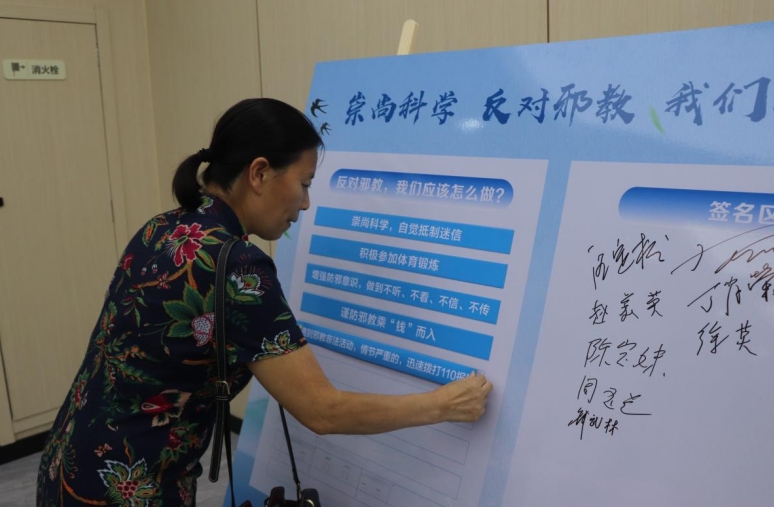 消火栓
崇尚科学 反对邪教 我们
反对邪教，我们应该怎么做？
崇尚科学，自觉抵制迷信
积极参加体育锻炼
增强防邪意识，做到不听、不看、不信、不传
谨防邪教乘“钱”而入
对邪教非法活动，情节严重的，迅速拨打110报
签名区
徐英